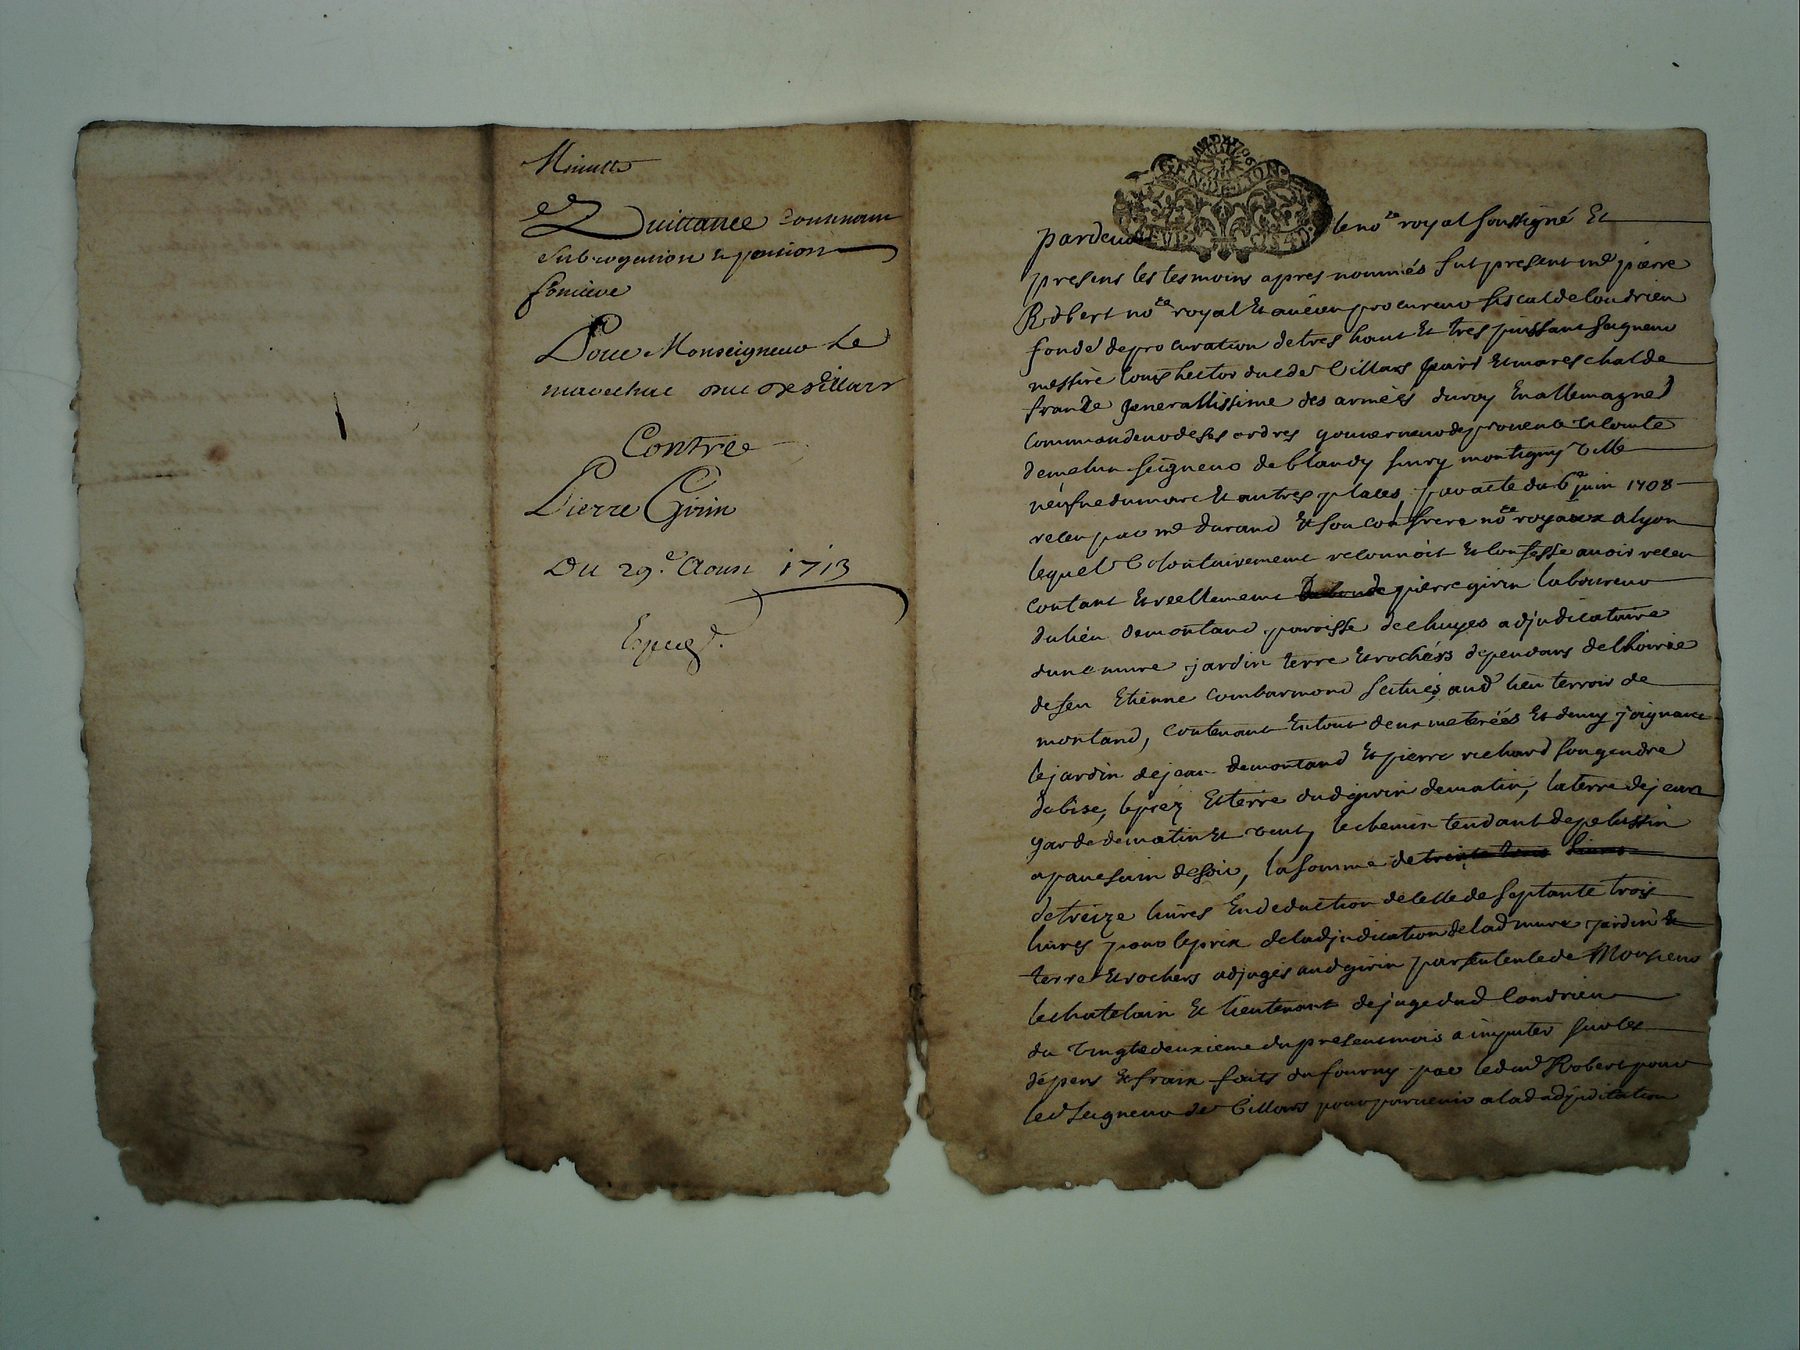 Minutte
de Quittance contenant
subrogation et pention
fonciere
Pour Monseigneur Le
mareschal duc de Villars
Contre
Pierre Girin
Du 29.e Aoust 1713
Expedé.
pardevant le nore royal soussigné Et
presens les tesmoins apres nommés fut present me pierre
Robert nore royal Et ancien procureur fiscal de Condrieu
fondé de procuration de tres haut Et tres puissant seigneur
messire louis hector duc de Villars pair Et mareschal de
france generallissime des armées du roy En allemagne
commandeur de ses ordres gouverneur de provence vicomte
de melun seigneur de blandy sivry montigny ville
neufve du marc Et autres places, par acte du 6e juin 1708
receu par me durand Et son confrere nore royaux a lyon
lequel Volontairement reconnoit Et confesse avoir receu
contant Et reellement pierre girin laboureur
du lieu de montand paroisse de chuyes adjudicataire
dune mure jardin terre Et rochers dependans de lhoirie
de feu Etienne Combarmond scitués aud lieu terroir de
montand, contenant En tout deux meterées Et demy joignant
le jardin de jean de montand Et pierre richard son gendre
de bise, le prez Et terre dud girin de matin, la terre de jean
garde de matin Et vent, le chemin tendant de pelussin
a pavesin de soir, la somme de trente trois livres
de treize livres En deduction de celle de septante trois
livres pour le prix de ladjudication de lad mure jardin Et
terre Et rochers adjugés aud girin par sentence de Monsieur
le chatelain Et lieutenant de juge dud Condrieu
du vingtedeuxieme du present mois a imputer sur les
dépens Et fraix faits ou fourny par led me Robert pour
led seigneur de Villars pour parvenir a lad adjudication